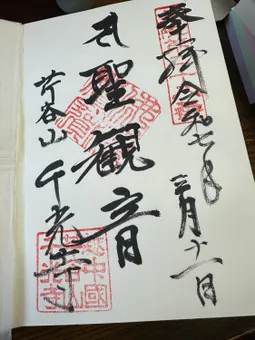 奉拝 令和七年
三月十一日
聖観音
芹谷山 千光寺